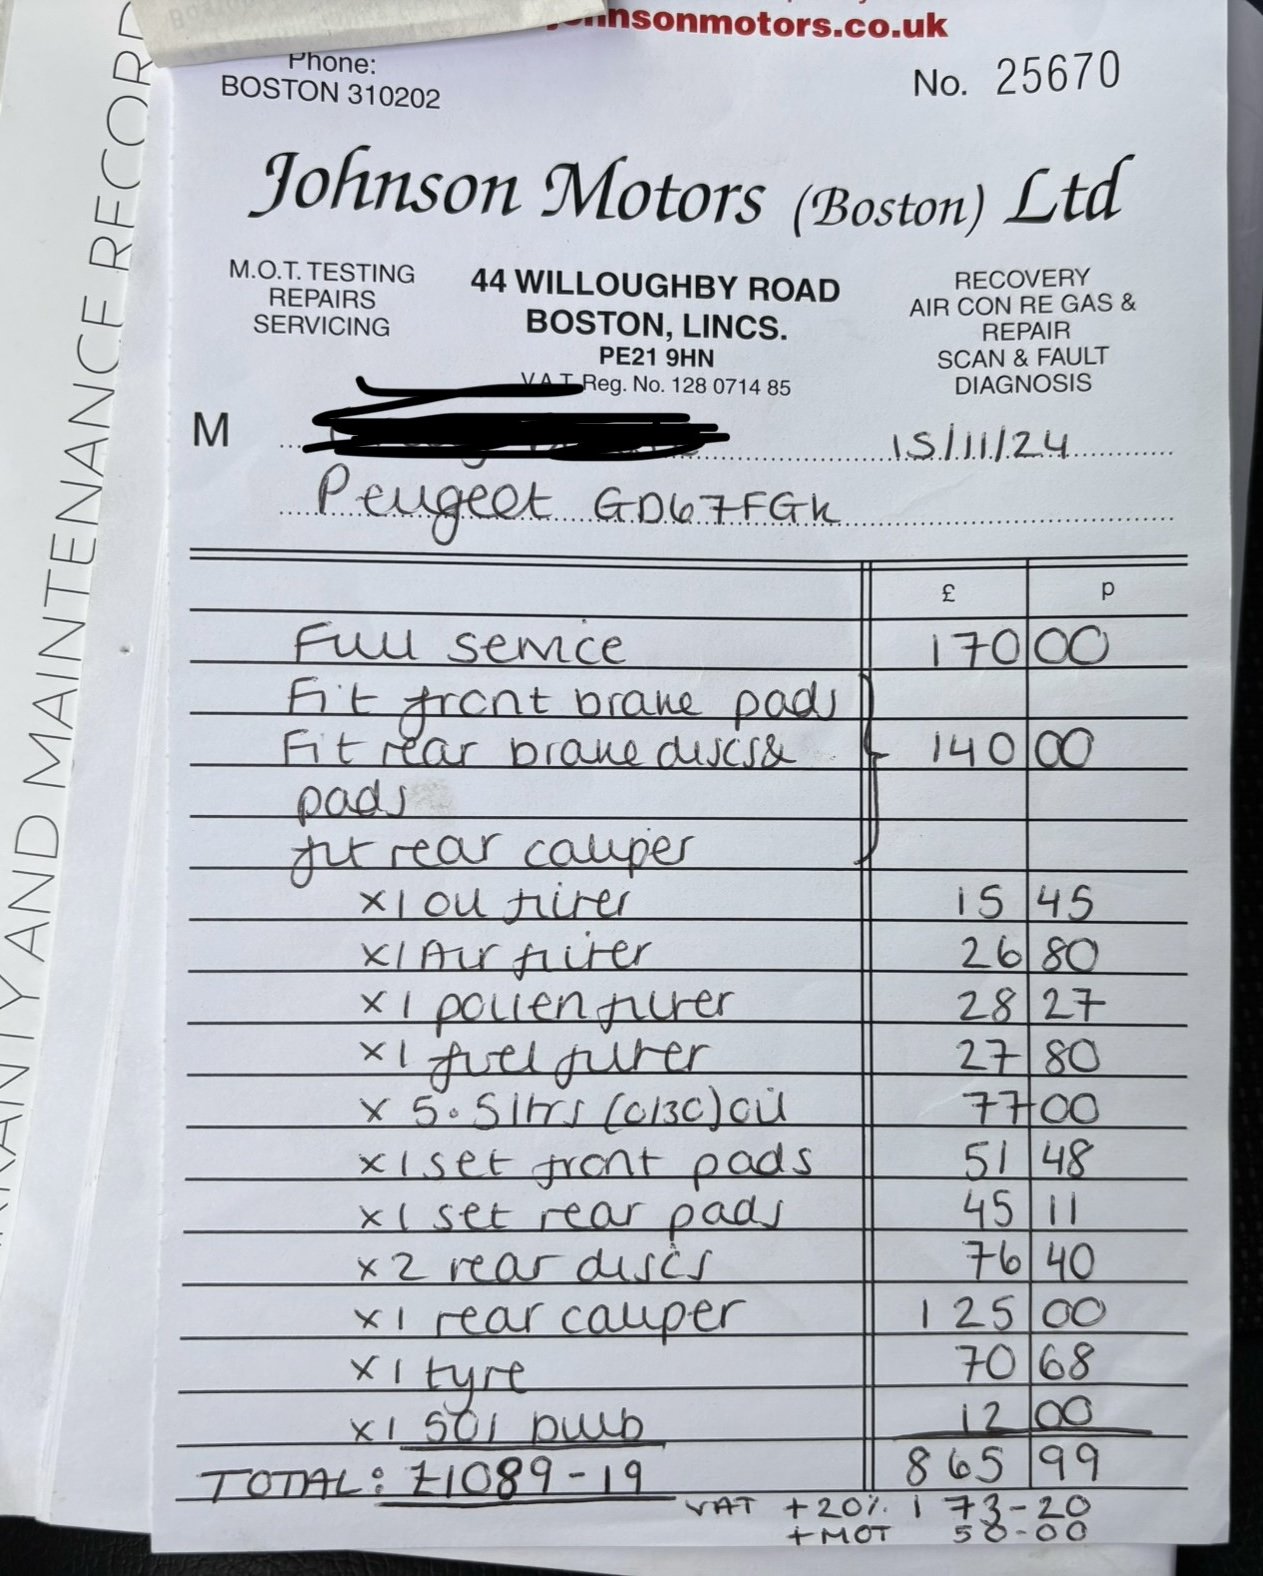 johnsonmotors.co.uk
Phone:
BOSTON 310202
No. 25670
Johnson Motors (Boston) Ltd
M.O.T. TESTING
REPAIRS
SERVICING
44 WILLOUGHBY ROAD
BOSTON, LINCS.
PE21 9HN
V.A.T. Reg. No. 128 0714 85
RECOVERY
AIR CON RE GAS &
REPAIR
SCAN & FAULT
DIAGNOSIS
M
15/11/24
Peugeot GD67FGK
£ p
Full service 170 00
Fit front brake pads
Fit rear brake discs & 140 00
pads
fit rear caliper
x1 oil filter 15 45
x1 Air filter 26 80
x1 pollen filter 28 27
x1 fuel filter 27 80
x 5.5ltrs (0/30) oil 77 00
x1 set front pads 51 48
x1 set rear pads 45 11
x2 rear discs 76 40
x1 rear caliper 125 00
x1 tyre 70 68
x1 501 bulb 12 00
TOTAL: £1089-19 865 99
VAT +20% 173-20
+MOT 50-00
WARRANTY AND MAINTENANCE RECORD